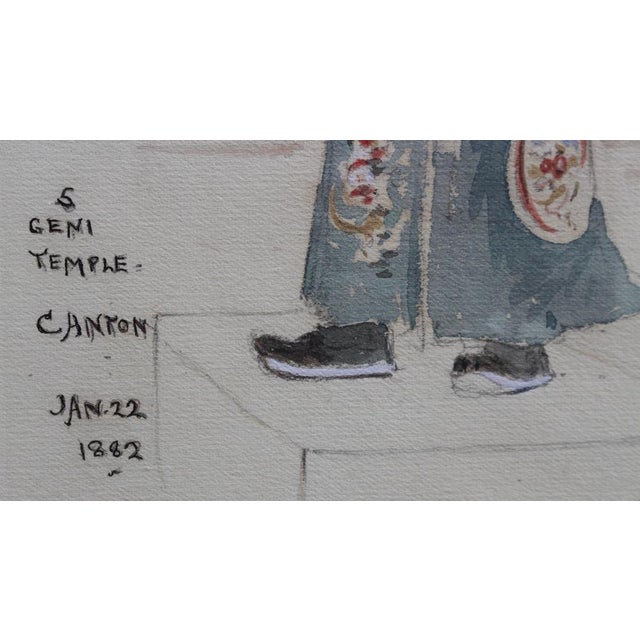 5
GENI
TEMPLE-
CANTON
JAN-22
1882